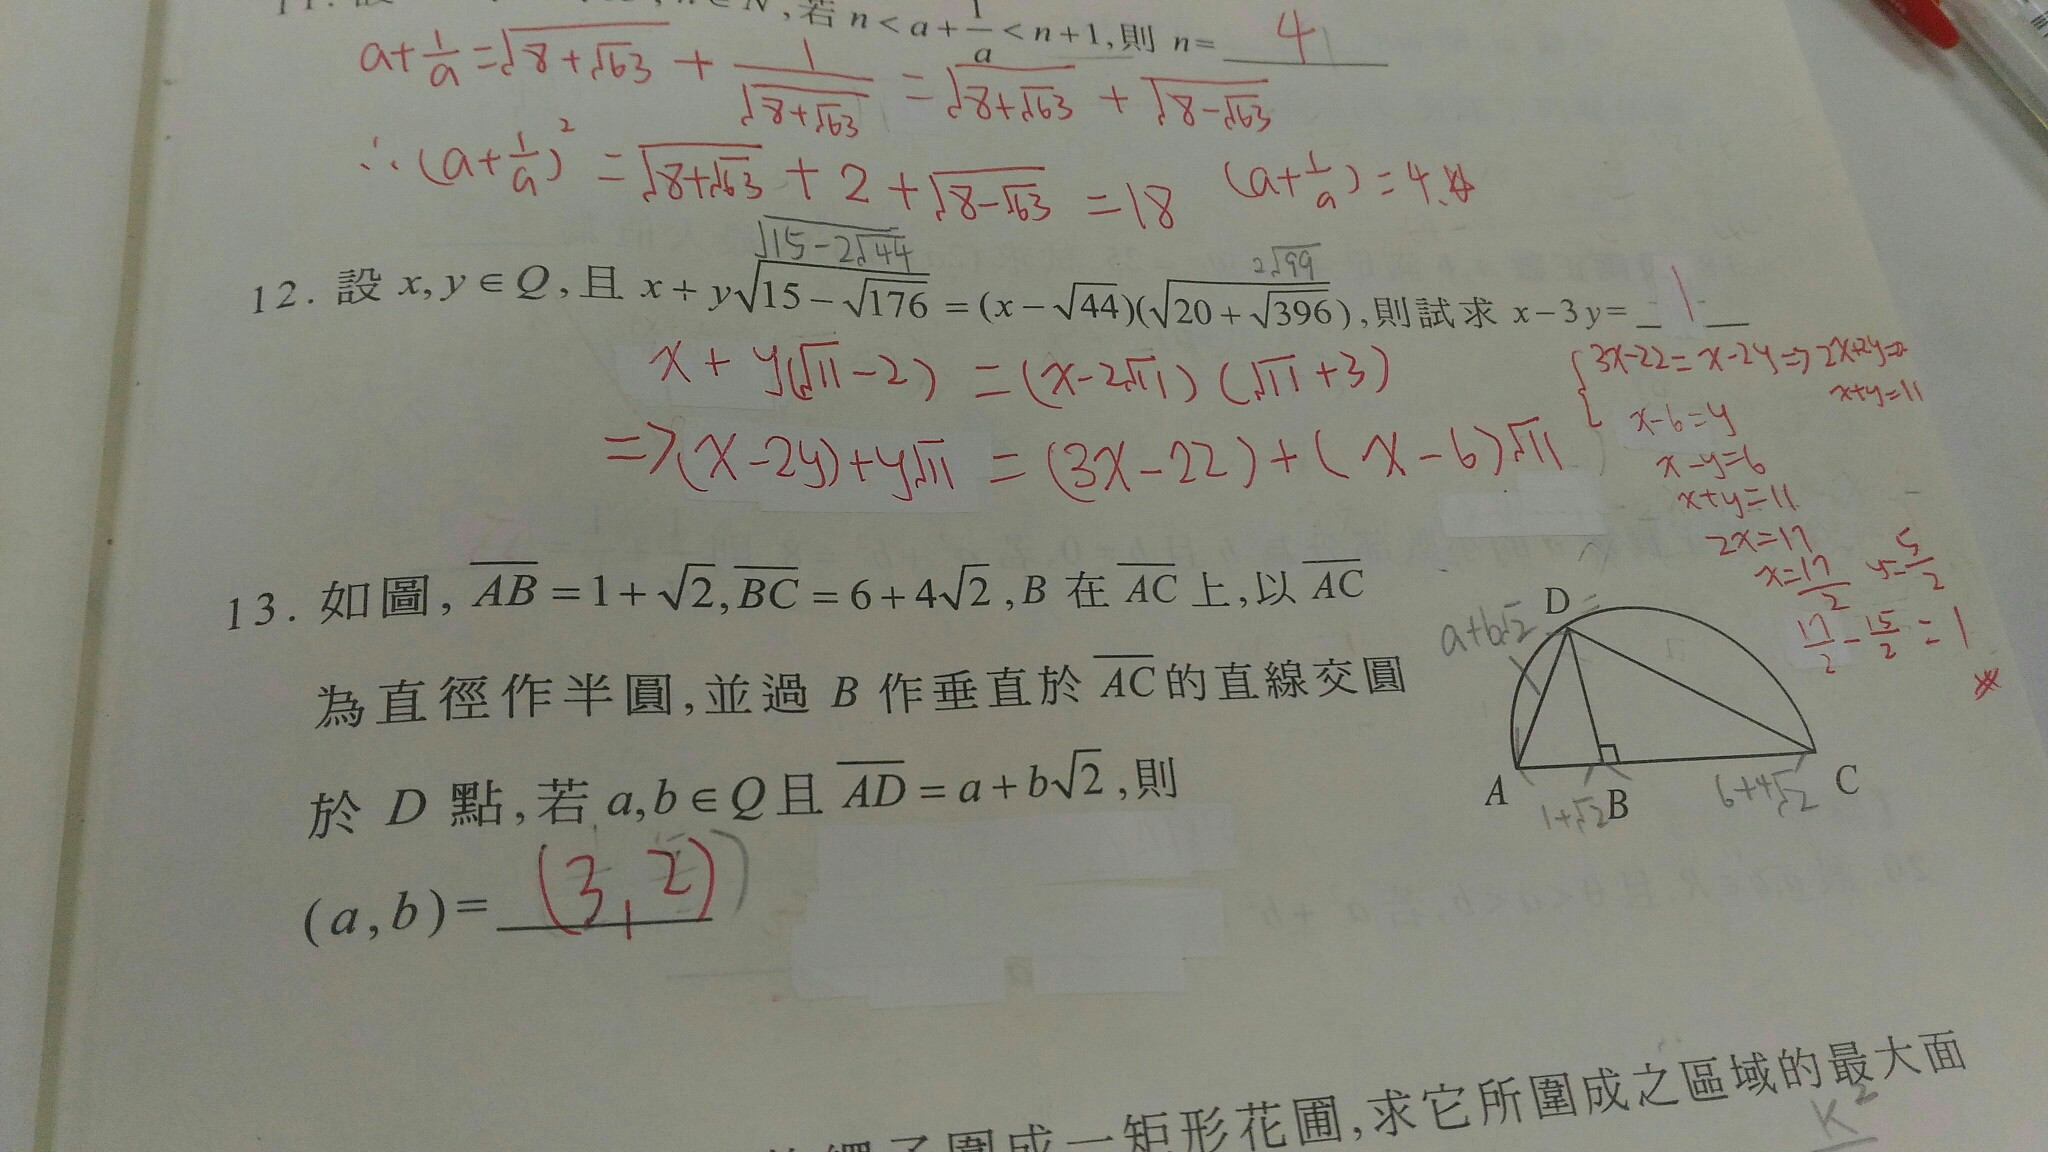 11. 設
∈N,若 n<a+1/a<n+1,則 n= 4
a+1/a=√(8+√63) + 1/√(8+√63) = √(8+√63) + √(8-√63)
∴(a+1/a)² = √(8+√63) + 2 + √(8-√63) = 18 (a+1/a)=4.
√(15-2√44) 2√99
12. 設 x,y∈Q,且 x+y√(15-√176)=(x-√44)(√(20+√396)),則試求 x-3y= 1
x+y(√11-2) = (x-2√11)(√11+3)
=>(x-2y)+y√11 = (3x-22)+(x-6)√11
3x-22=x-2y=>2x+2y=
x+y=11
x-6=y
x-y=6
x+y=11
2x=17
x=17/2 y=5/2
17/2-15/2=1
13. 如圖, AB=1+√2, BC=6+4√2, B 在 AC 上,以 AC
為直徑作半圓,並過 B 作垂直於 AC 的直線交圓
於 D 點,若 a,b∈Q 且 AD=a+b√2,則
(a,b)= (3,2)
D
a+b√2
A B C
1+√2 6+4√2
繩子圍成一矩形花圃,求它所圍成之區域的最大面
K²